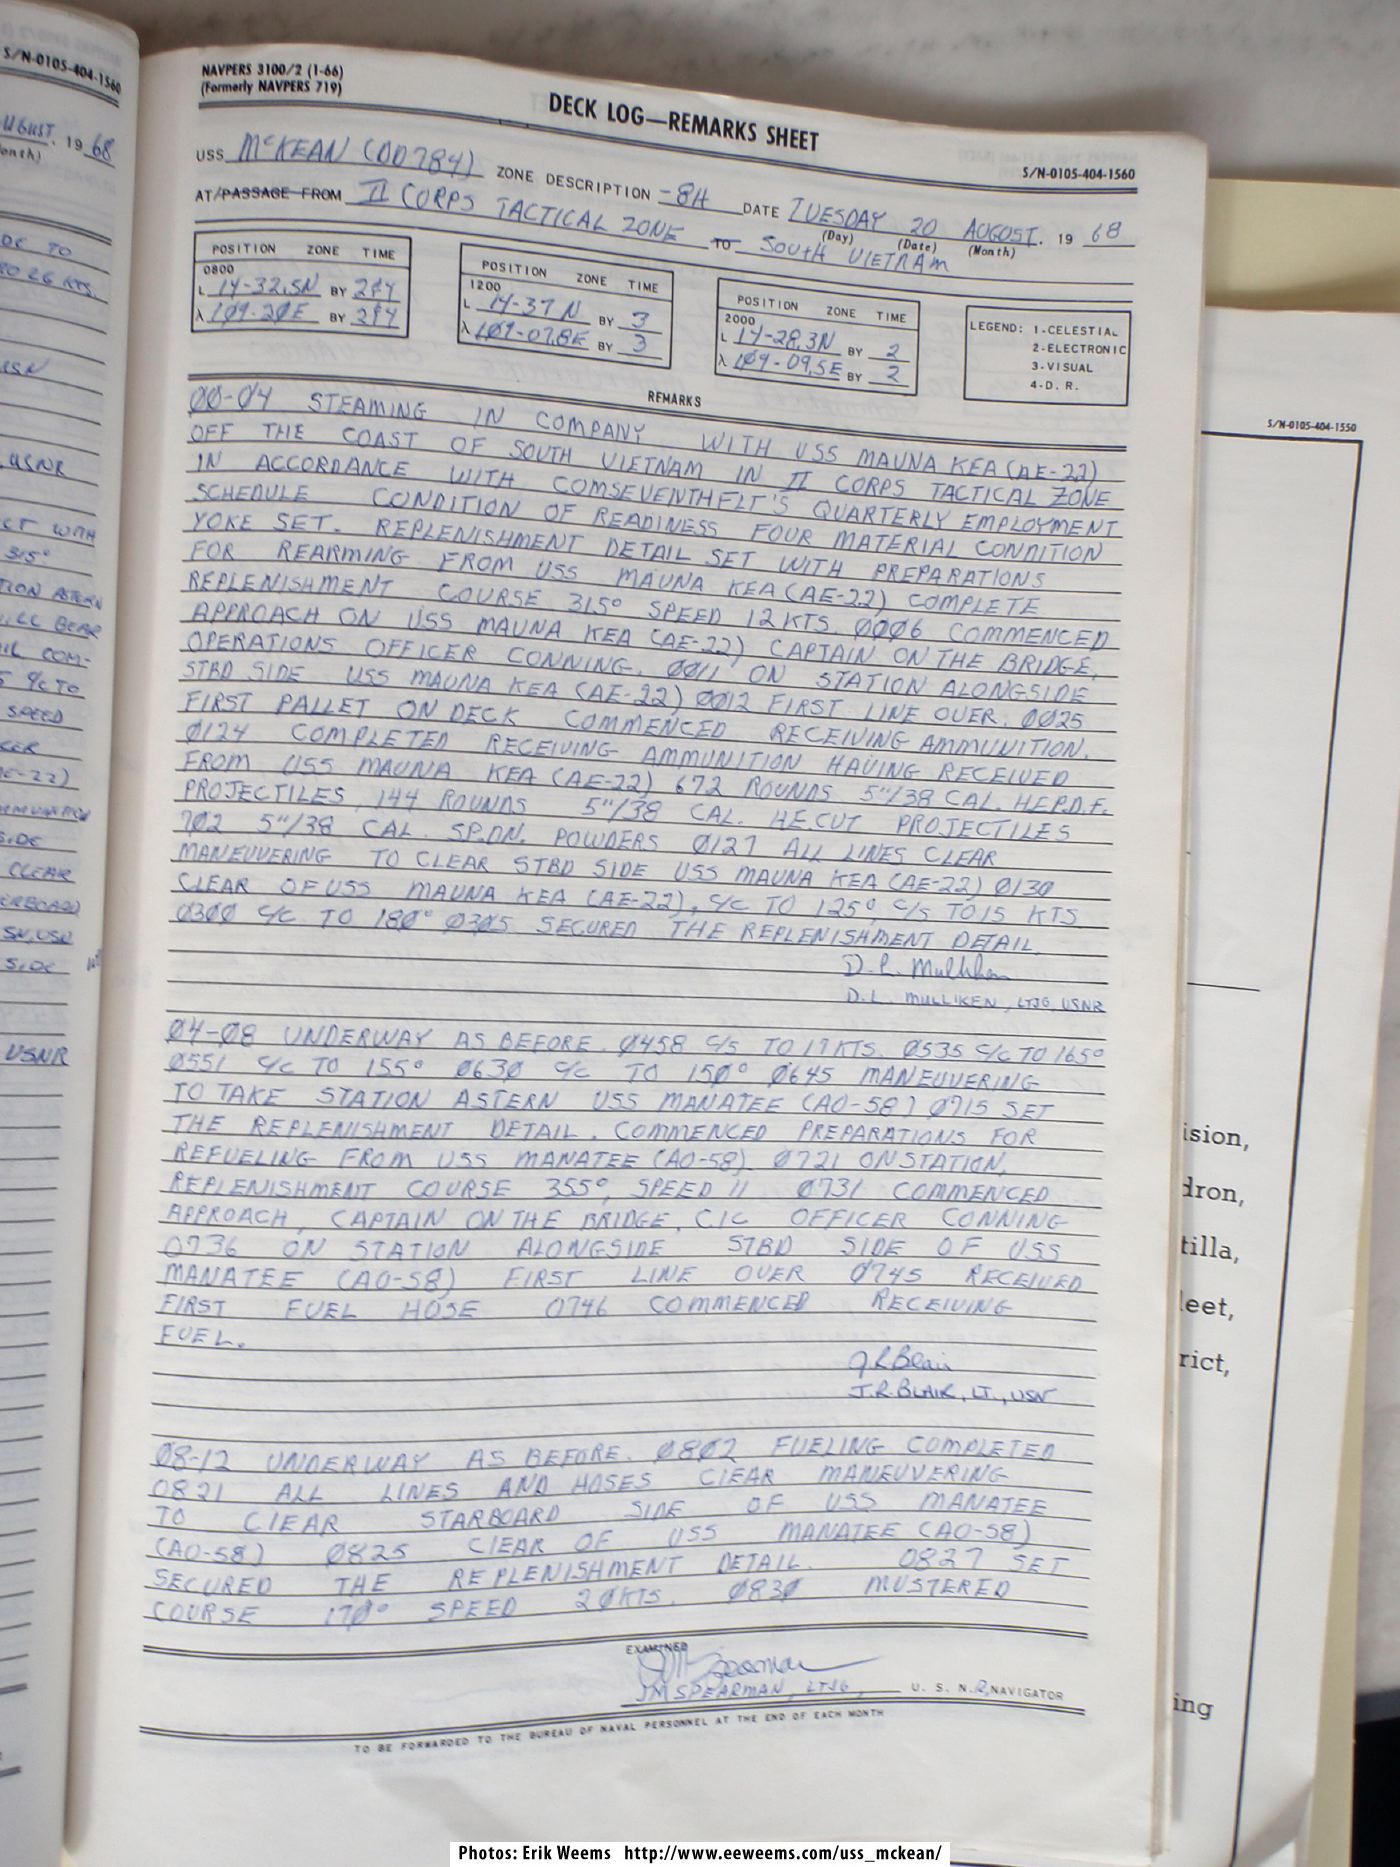 S/N-0105-404-1560
AUGUST. 19 68
NAVPERS 3100/2 (1-66)
(Formerly NAVPERS 719)
DECK LOG—REMARKS SHEET
S/N-0105-404-1560
USS McKEAN (DD784) ZONE DESCRIPTION -8H DATE TUESDAY 20 AUGUST. 19 68
(Day) (Date) (Month)
AT/PASSAGE FROM II CORPS TACTICAL ZONE TO SOUTH VIETNAM
POSITION ZONE TIME
0800
L 14-32.5N BY 2&4
λ 109-20E BY 2&4
POSITION ZONE TIME
1200
L 14-37 N BY 3
λ 109-07.8E BY 3
POSITION ZONE TIME
2000
L 14-28.3N BY 2
λ 109-09.5E BY 2
LEGEND: 1-CELESTIAL
2-ELECTRONIC
3-VISUAL
4-D. R.
REMARKS
00-04 STEAMING IN COMPANY WITH USS MAUNA KEA (AE-22)
OFF THE COAST OF SOUTH VIETNAM IN II CORPS TACTICAL ZONE
IN ACCORDANCE WITH COMSEVENTHFLT'S QUARTERLY EMPLOYMENT
SCHEDULE CONDITION OF READINESS FOUR MATERIAL CONDITION
YOKE SET. REPLENISHMENT DETAIL SET WITH PREPARATIONS
FOR REARMING FROM USS MAUNA KEA (AE-22) COMPLETE
REPLENISHMENT COURSE 315° SPEED 12 KTS. 0006 COMMENCED
APPROACH ON USS MAUNA KEA (AE-22) CAPTAIN ON THE BRIDGE,
OPERATIONS OFFICER CONNING. 0011 ON STATION ALONGSIDE
STBD SIDE USS MAUNA KEA (AE-22) 0012 FIRST LINE OVER. 0025
FIRST PALLET ON DECK COMMENCED RECEIVING AMMUNITION.
0124 COMPLETED RECEIVING AMMUNITION HAVING RECEIVED
FROM USS MAUNA KEA (AE-22) 672 ROUNDS 5"/38 CAL. HE.P.D.F.
PROJECTILES, 144 ROUNDS 5"/38 CAL. HE.CVT PROJECTILES
702 5"/38 CAL. SP.DN. POWDERS 0127 ALL LINES CLEAR
MANEUVERING TO CLEAR STBD SIDE USS MAUNA KEA (AE-22) 0130
CLEAR OF USS MAUNA KEA (AE-22), C/C TO 125°, C/S TO 15 KTS.
0300 C/C TO 180° 0305 SECURED THE REPLENISHMENT DETAIL.
D. L. Mulliken
D. L. MULLIKEN, LTJG, USNR
04-08 UNDERWAY AS BEFORE. 0458 C/S TO 17 KTS. 0535 C/C TO 165°
0551 C/C TO 155° 0630 C/C TO 150° 0645 MANEUVERING
TO TAKE STATION ASTERN USS MANATEE (AO-58) 0715 SET
THE REPLENISHMENT DETAIL. COMMENCED PREPARATIONS FOR
REFUELING FROM USS MANATEE (AO-58) 0721 ON STATION,
REPLENISHMENT COURSE 355°, SPEED 11 0731 COMMENCED
APPROACH, CAPTAIN ON THE BRIDGE, CIC OFFICER CONNING
0736 ON STATION ALONGSIDE STBD SIDE OF USS
MANATEE (AO-58) FIRST LINE OVER 0745 RECEIVED
FIRST FUEL HOSE 0746 COMMENCED RECEIVING
FUEL.
J R Blair
J.R. BLAIR, LT., USN
08-12 UNDERWAY AS BEFORE. 0802 FUELING COMPLETED
0821 ALL LINES AND HOSES CLEAR MANEUVERING
TO CLEAR STARBOARD SIDE OF USS MANATEE
(AO-58) 0825 CLEAR OF USS MANATEE (AO-58)
SECURED THE REPLENISHMENT DETAIL. 0827 SET
COURSE 170° SPEED 20KTS. 0830 MUSTERED
EXAMINED
JM Spearman
JM SPEARMAN, LTJG, U. S. N.R, NAVIGATOR
TO BE FORWARDED TO THE BUREAU OF NAVAL PERSONNEL AT THE END OF EACH MONTH
S/N-0105-404-1550
ision,
dron,
tilla,
leet,
rict,
ing
Photos: Erik Weems http://www.eeweems.com/uss_mckean/